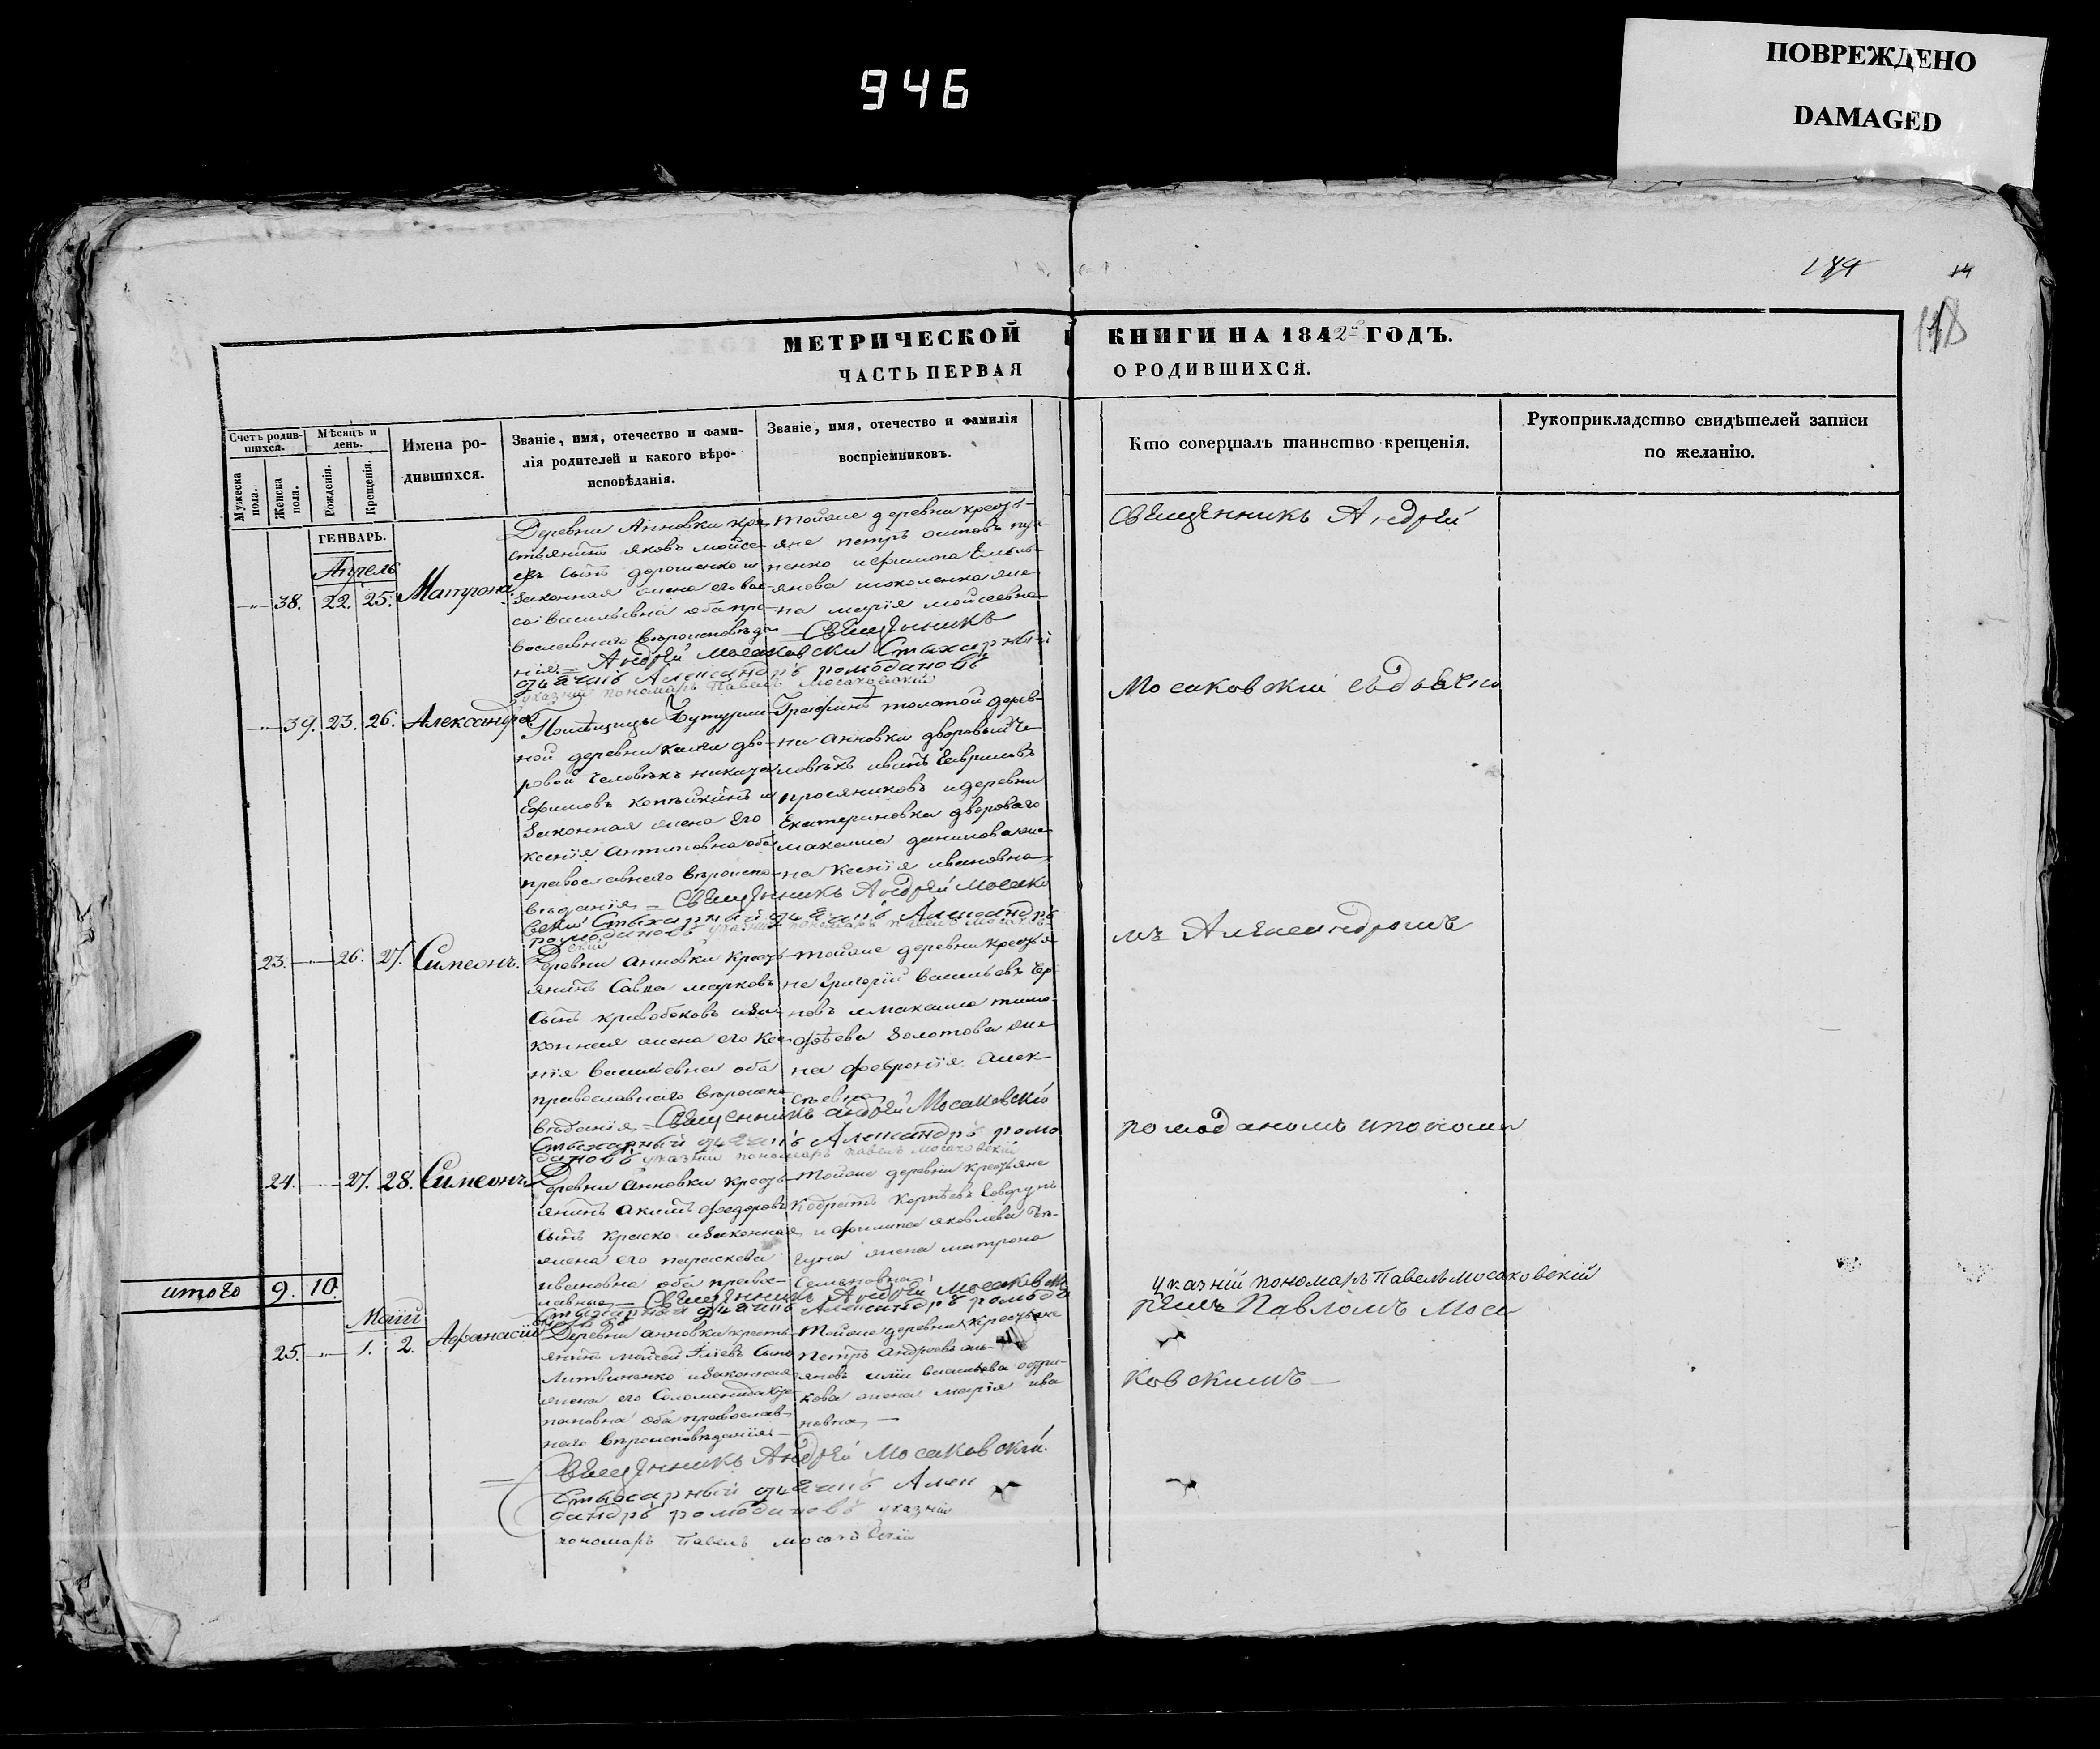 ПОВРЕЖДЕНО
DAMAGED
946
184
14
118
МЕТРИЧЕСКОЙ КНИГИ НА 1842й ГОДЪ.
ЧАСТЬ ПЕРВАЯ О РОДИВШИХСЯ.
Счетъ родив-
шихся.
Мужеска пола.
Женска пола.
Мѣсяцъ и день.
Рожденія.
Крещенія.
Имена ро-
дившихся.
Званіе, имя, отечество и фами-
лія родителей и какого вѣро-
исповѣданія.
Званіе, имя, отечество и фамилія
воспріемниковъ.
Кто совершалъ таинство крещенія.
Рукоприкладство свидѣтелей записи
по желанію.
ГЕНВАРЬ.
Апрель
38. 22. 25. Матрона
Деревни Анновки кре-
стьянинъ яковъ мойсе-
евъ сынъ дорошенко и
законная жена его вас-
са васильевна оба пра-
вославнаго вѣроисповѣда-
нія =
тойже деревни кресть-
яне петръ осиповъ
пенко и филипа Емель-
янова шоколенка же-
на марія мойсеевна
Священникъ
Андрей Мосаковски Стихарный
дьячикъ Александръ ромодановъ
указній пономаръ Павелъ Мосаковскій
39. 23. 26. Александра
Помѣщицы Бутурли-
ной деревни дво-
ровой человѣкъ никита
Ефимовъ копѣйкинъ и
законная жена его
ксенія антиповна оба
православнаго вѣроиспо-
вѣданія =
Графини толстой дерев-
ни анновки дворовый че-
ловѣкъ иванъ Гавриловъ
просяниковъ и деревни
Екатериновки дворового
максима данилова же-
на ксенія ивановна =
Священникъ Андрей Мосако
вски Стихарный дьячикъ Александръ
ромодановъ указній пономаръ Павелъ Мосаков
скій
23. 26. 27. Симеонъ.
Деревни анновки кресть-
янинъ Савва марковъ
сынъ кривобоковъ и за-
конная жена его ксе-
нія васильевна оба
православнаго вѣроиспо-
вѣданія =
тойже деревни крестья-
не григорій васильевъ
новъ и максима тимо-
фѣева золотова же-
на февронія алек-
сѣевна
Священникъ андрей Мосаковскій
Стихарный дьячикъ Александръ ромо
дановъ указній пономаръ павелъ мосаковскій
24. 27. 28. Симеонъ
Деревни анновки кресть-
янинъ акимъ федоровъ
сынъ краско и законная
жена его параскева
ивановна оба правос-
лавные =
тойже деревни крестьяне
Кодратъ Корнѣевъ Говорунъ
и филипа яковлева
жена матрона
Семеновна
Священникъ Андрей Мосаковски
Стихарный дьячикъ Александръ ромода
новъ
итого 9. 10.
Маій
25. 1. 2. Афанасій
Деревни анновки кресть-
янинъ мойсей Іліевъ Сынъ
Литвиненко и законная
жена его Соломонида
повна оба православ-
наго вѣроисповѣданія
тойже деревни крестьяне
петръ андреевъ
яновъ иліи васильева
кова жена марія ива
новна
Священникъ Андрей Мосаковскій.
Стихарный дьячикъ Алек
сандръ ромодановъ указній
пономаръ Павелъ мосаковскій
Священникъ Андрей
Мосаковскій содьячко
мъ Александромъ
ромоданомъ и поном
указній пономаръ Павелъ Мосаковскій
ремъ Павломъ Моса
ковскимъ